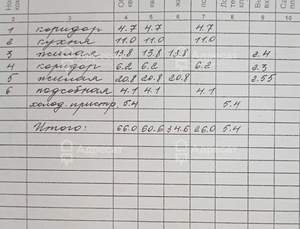 2 3 4 5 6 7 8 9
1 коридор 4.7 4.7 4.7
2 кухня 11.0 11.0 11.0
3 жилая 13.8 13.8 13.8 2.4
4 коридор 6.2 6.2 6.2 2.3
5 жилая 20.8 20.8 20.8 2.55
6 подсобная 4.1 4.1 4.1
холод. пристр. 5.4 5.4
Итого: 66.0 60.6 34.6 26.0 5.4